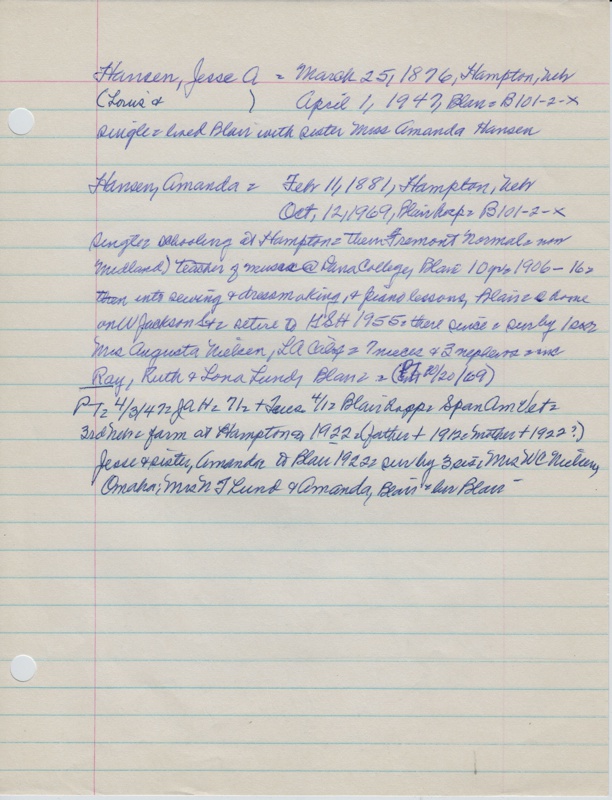 Hansen, Jesse A = March 25, 1876, Hampton, Nebr
(Louis & ) April 1, 1947, Blair = B101-2-X
single = lived Blair with sister Miss Amanda Hansen
Hansen, Amanda = Feb 11, 1881, Hampton, Nebr
Oct, 12, 1969, Blair hosp = B101-2-X
single = schooling at Hampton = then Fremont Normal = now
Midland) teacher of music @ Dana College, Blair 10 yrs 1906-16 =
then into sewing & dressmaking, & piano lessons, Blair = home
on W Jackson St = retire to 1955 = there since = sur by 1 sis
Mrs Augusta Nielsen, LA Calif = 7 nieces & 3 nephews =
Ray, Ruth & Lona Lund, Blair = (PT 10/20/69)
PT = 4/3/47 = JAH = 71 = + Tues 4/1 = Blair hosp = Span Am Vet =
3rd Neb = farm at Hampton = 1922 = (father + 1912 = mother + 1922?)
Jesse & sister, Amanda to Blair 1922 = sur by 3 sis, Mrs W C Nielsen,
Omaha; Mrs N T Lund & Amanda, Blair = bur Blair